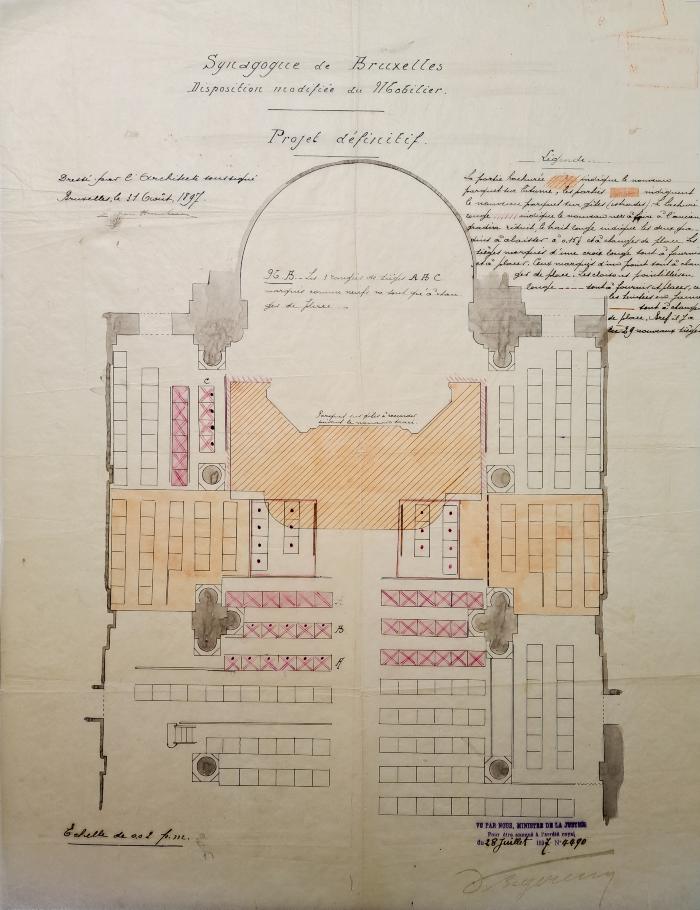 Synagogue de Bruxelles
Disposition modifiée du Mobilier.
Projet définitif.
Dressé par l'Architecte soussigné
Bruxelles, le 31 Août 1897.
Légende
La partie hachurée indique le nouveau
parquet sur bitume, les parties indiquent
le nouveau parquet sur gîtes (estrades). Le hachuré
rouge indique le nouveau
réduit, le trait rouge indique les deux
à 0.15 et à changer de place. Les
sièges marqués d'une croix rouge sont à fournir
et à placer. Ceux marqués d'un point sont à chan
ger de place. Les cloisons pointillées en
rouge sont à fournir et à placer,
les teintées en
sont à changer
de place. Bref il y a
29 nouveaux sièges
N.B. Les 3 rangées de sièges A B C
marquées comme neufs ne sont qu'à chan
ger de place
C
Parquet sur gîtes à
suivant le nouveau tracé.
B
A
Echelle de 0.02 p.m.
VU PAR NOUS, MINISTRE DE LA JUSTICE
Pour être annexé à l'arrêté royal
du 28 Juillet 1897 N° 4490